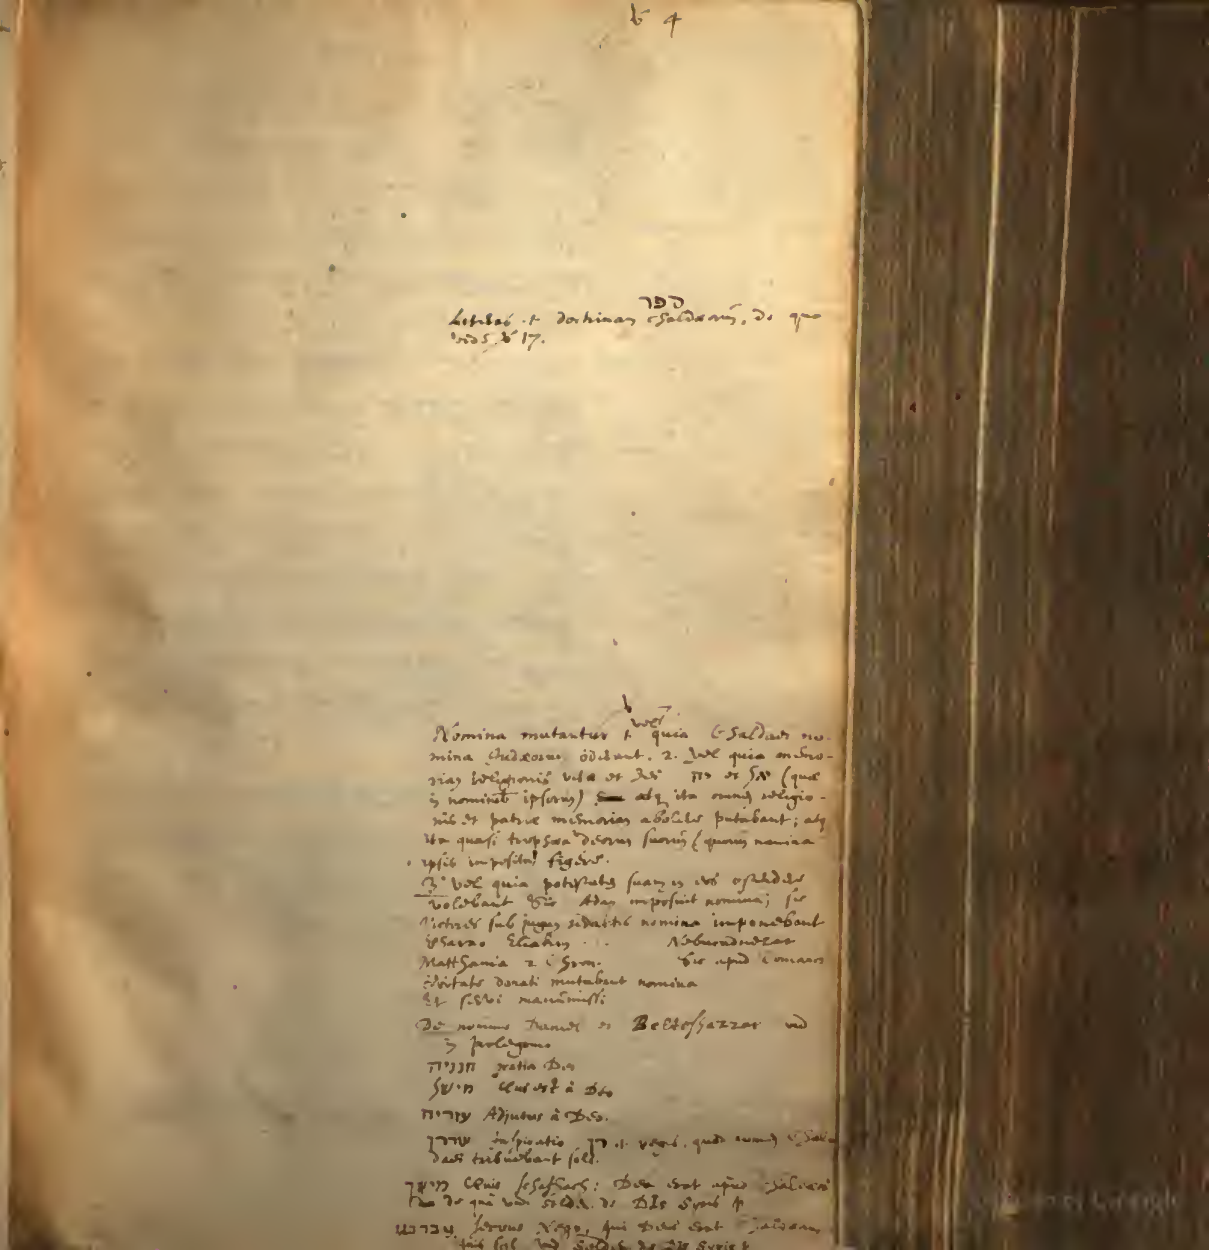 ℣ 4
ספר
Literas et doctrinam Chaldaeorū, de quo
vid s. ℣ 17.
vel
Nomina mutantur 1 quia Chaldaei no-
mina Judaeorum oderant. 2. Vel quia memo-
riam religionis et Dei יה et אל (quae
in nominib ipsorum) atq ita omnem religio-
nis et patriae memoriam abolere putabant; atq
ita quasi trophaea deorum suorū (quorū nomina
ipsis imposita) figere.
3 Vel quia potestatem suam in eos ostendere
volebant Sic Adam imposuit nomina; sic
Victores sub jugum redactis nomina imponebant
Pharao Eliakim Nebucadnezar
Matthania 2 Chron. Sic apud Romanos
civitate donati mutabant nomina
Et servi manumissi
De nomine Daniel et Beltschazzar vid
in prolegom
חנניה gratia Dei
מישאל Qui est à Deo
עזריה Adjutus à Deo.
שדרך inspiratio רך i. regis, quod nomen Chal-
daei tribuebant soli.
מישך Quis Schaschach: Dea erat apud Chaldaeos
de qua vid Selden. de DIs Syris
עבדנגו servus Nego, qui Deus erat Chaldaeorum
vid Selden de DIs Syris